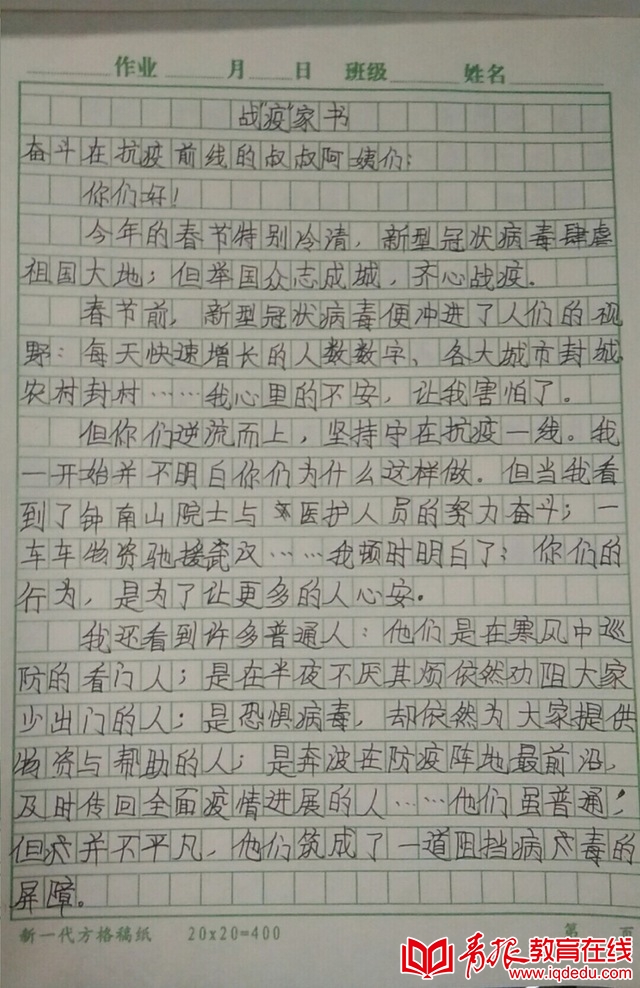 作业 月 日 班级 姓名
战“疫”家书
奋斗在抗疫前线的叔叔阿姨们：
你们好！
今年的春节特别冷清，新型冠状病毒肆虐
祖国大地；但举国众志成城，齐心战疫．
春节前，新型冠状病毒便冲进了人们的视
野：每天快速增长的人数数字、各大城市封城
农村封村……我心里的不安，让我害怕了。
但你们逆流而上，坚持守在抗疫一线。我
一开始并不明白你们为什么这样做．但当我看
到了钟南山院士与医护人员的努力奋斗；一
车车物资驰援武汉……我顿时明白了：你们的
行为，是为了让更多的人心安．
我还看到许多普通人：他们是在寒风中巡
防的看门人；是在半夜不厌其烦依然劝阻大家
少出门的人；是恐惧病毒，却依然为大家提供
物资与帮助的人；是奔波在防疫阵地最前沿，
及时传回全面疫情进展的人……他们虽普通，
但并不平凡，他们筑成了一道阻挡病毒的
屏障。
新一代方格稿纸 20x20=400 第 页
青报教育在线
www.iqdedu.com